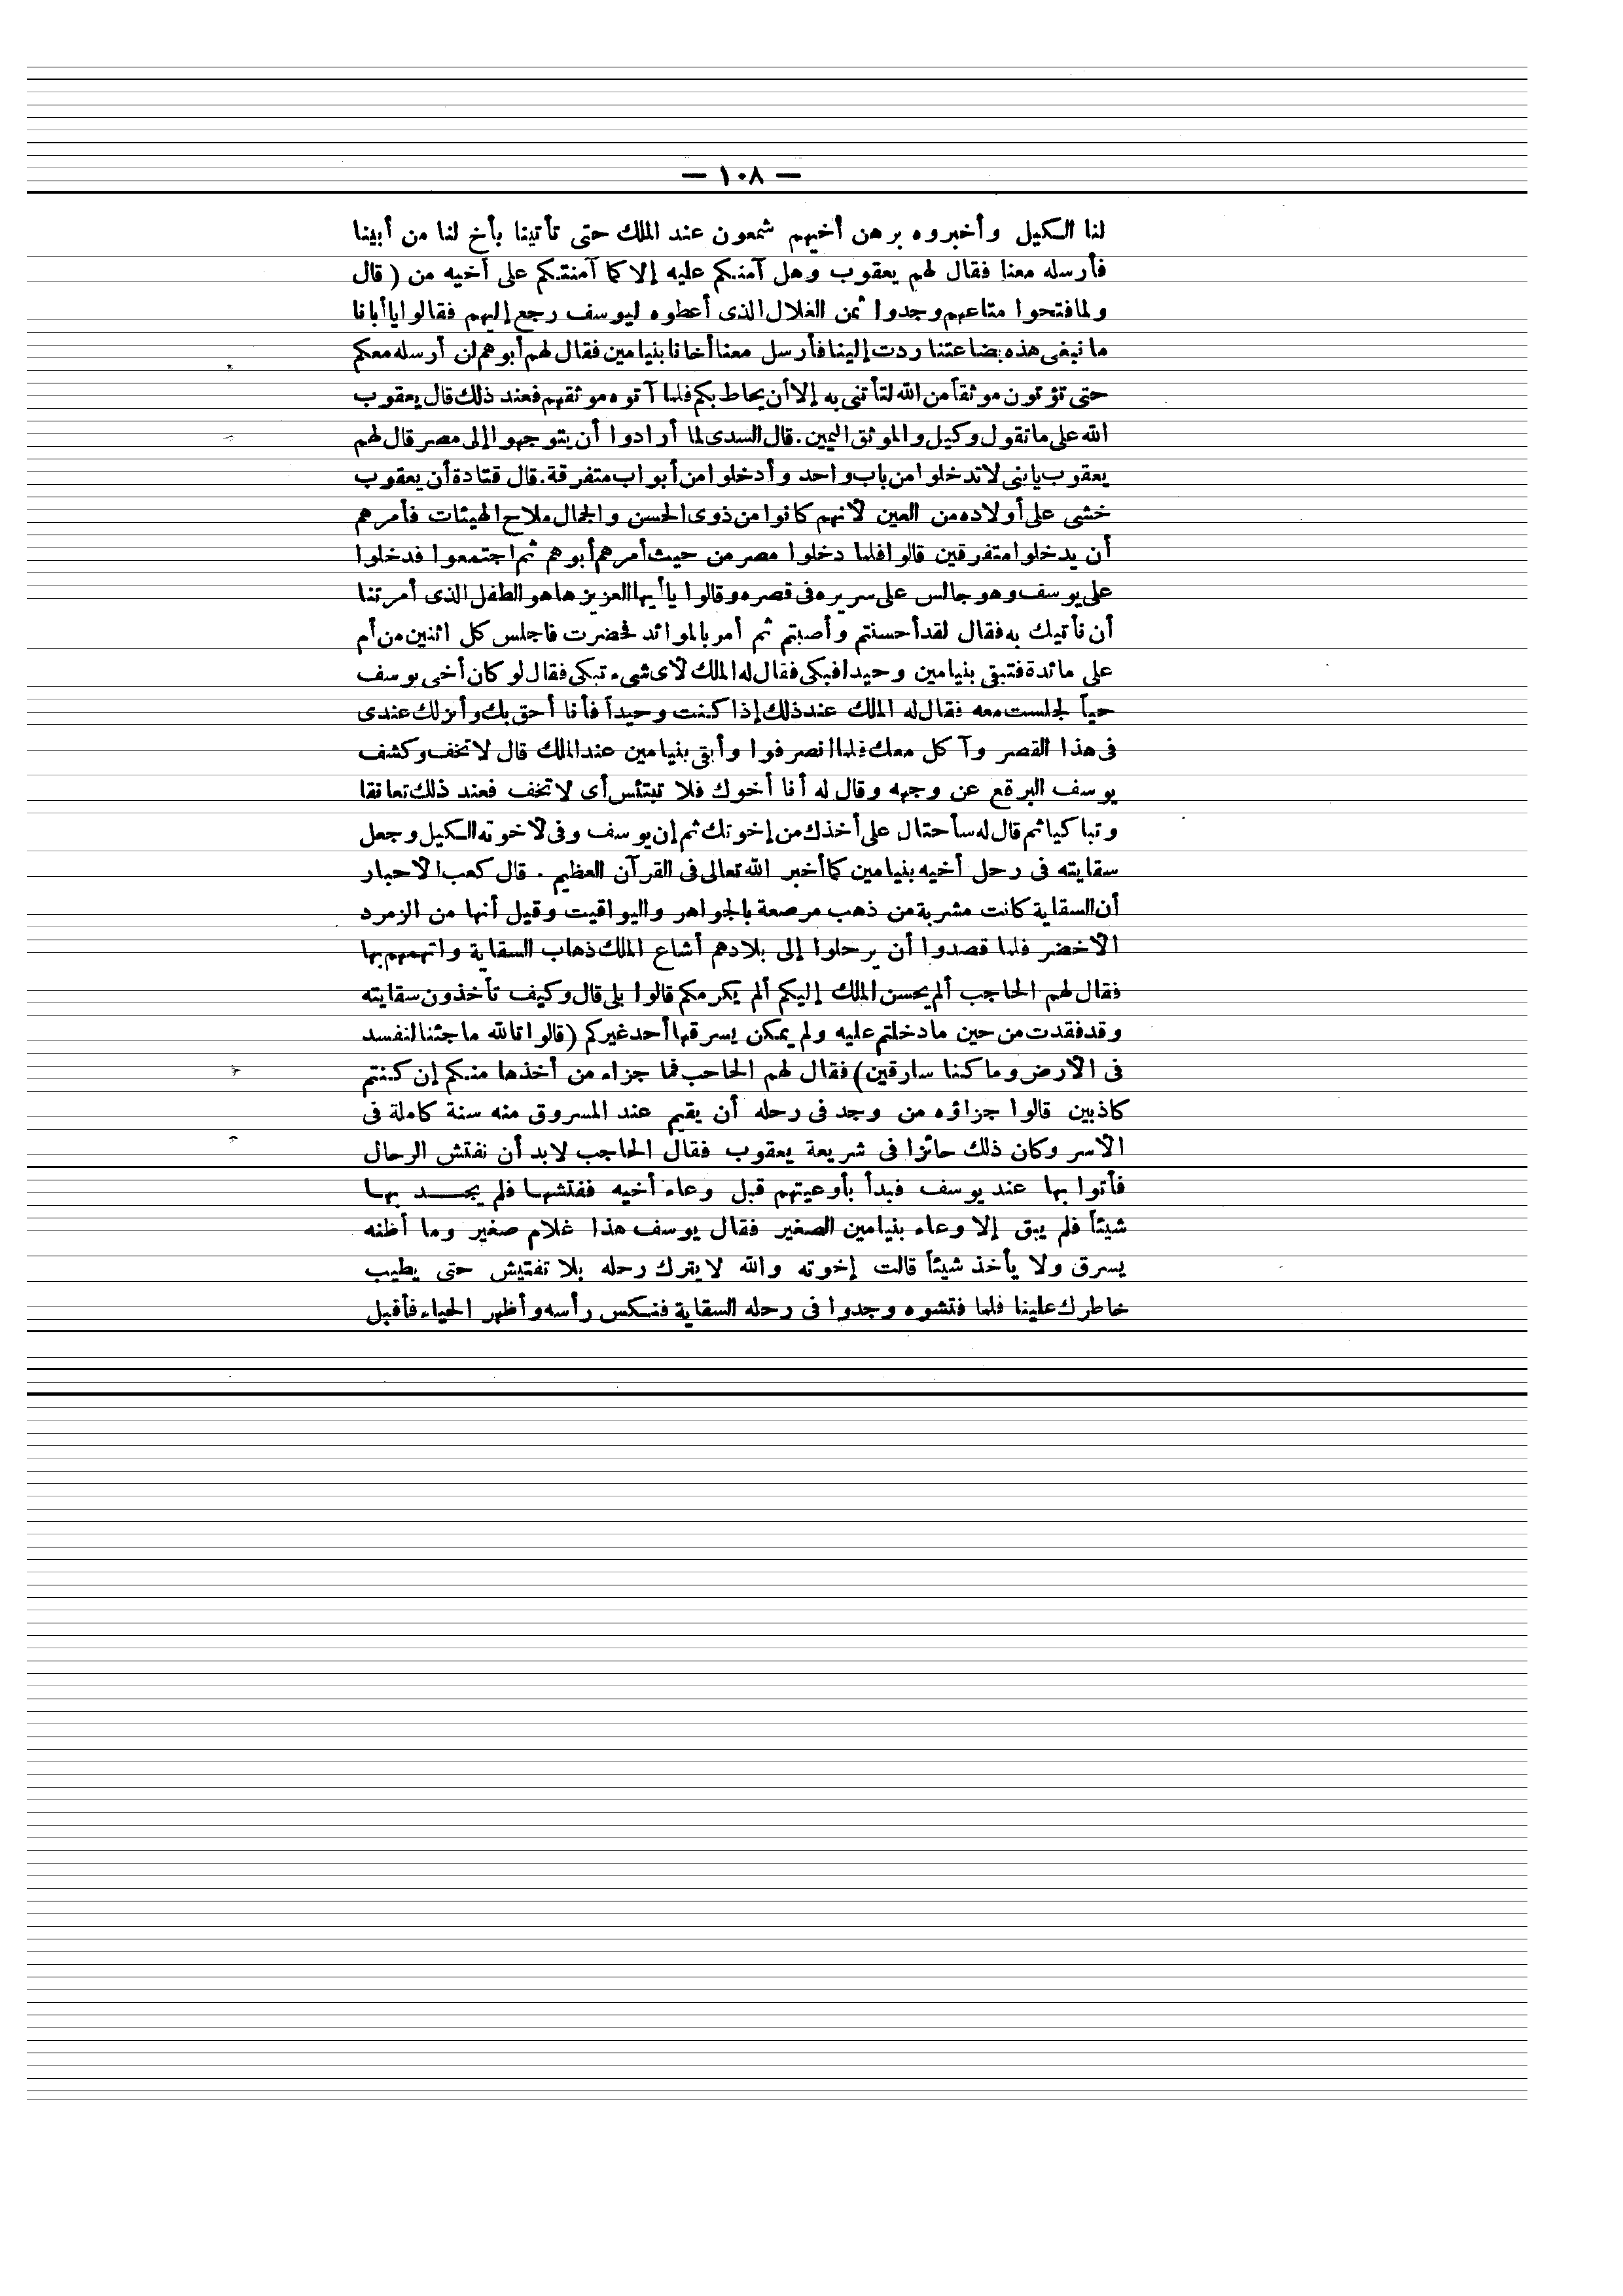 — ١٠٨ —
لنا الكيل وأخبروه برهن أخيهم شمعون عند الملك حتى تأتينا بأخ لنا من أبينا
فأرسله معنا فقال لهم يعقوب وهل آمنكم عليه إلا كما آمنتكم على أخيه من ( قال
ولما فتحوا متاعهم وجدوا ثمن الغلال الذى أعطوه ليوسف رجع إليهم فقالوا يا أبانا
ما نبغى هذه بضاعتنا ردت إلينا فأرسل معنا أخانا بنيامين فقال لهم أبوهم لن أرسله معكم
حتى تؤتون موثقاً من الله لتأتنى به إلا أن يحاط بكم فلما آتوه موثقهم فعند ذلك قال يعقوب
الله على ما نقول وكيل والموثق اليمين . قال السدى لما أرادوا أن يتوجهوا إلى مصر قال لهم
يعقوب يا بنى لا تدخلوا من باب واحد وأدخلوا من أبواب متفرقة . قال قتادة أن يعقوب
خشى على أولاده من العين لأنهم كانوا من ذوى الحسن والجمال ملاح الهيئات فأمرهم
أن يدخلوا متفرقين قالوا فلما دخلوا مصر من حيث أمرهم أبوهم ثم اجتمعوا فدخلوا
على يوسف وهو جالس على سريره فى قصره وقالوا يا أيها العزيز ها هو الطفل الذى أمرتنا
أن نأتيك به فقال لقد أحسنتم وأصبتم ثم أمر بالموائد فحضرت فاجلس كل اثنين من أم
على مائدة فتبقى بنيامين وحيدا فبكى فقال له الملك لأى شىء تبكى فقال لو كان أخى يوسف
حياً لجلست معه فقال له الملك عند ذلك إذا كنت وحيداً فأنا أحق بك وأنزلك عندى
فى هذا القصر وآكل معك فلما انصرفوا وأبقى بنيامين عند الملك قال لا تخف وكشف
يوسف البرقع عن وجهه وقال له أنا أخوك فلا تبتئس أى لا تخف فعند ذلك تعانقا
وتباكيا ثم قال له سأحتال على أخذك من إخوتك ثم إن يوسف وفى لأخوته الكيل وجعل
سقايته فى رحل أخيه بنيامين كما أخبر الله تعالى فى القرآن العظيم . قال كعب الأحبار
أن السقاية كانت مشربة من ذهب مرصعة بالجواهر واليواقيت وقيل أنها من الزمرد
الأخضر فلما قصدوا أن يرحلوا إلى بلادهم أشاع الملك ذهاب السقاية واتهمهم بها
فقال لهم الحاجب ألم يحسن الملك إليكم ألم يكرمكم قالوا بلى قال وكيف تأخذون سقايته
وقد فقدت من حين ما دخلتم عليه ولم يمكن يسرقها أحد غيركم ( قالوا تالله ما جئنا لنفسد
فى الأرض وما كنا سارقين ) فقال لهم الحاجب فما جزاء من أخذها منكم إن كنتم
كاذبين قالوا جزاؤه من وجد فى رحله أن يقيم عند المسروق منه سنة كاملة فى
الأسر وكان ذلك جائزا فى شريعة يعقوب فقال الحاجب لابد أن نفتش الرحال
فأتوا بها عند يوسف فبدأ بأوعيتهم قبل وعاء أخيه ففتشها فلم يجد بها
شيئاً فلم يبق إلا وعاء بنيامين الصغير فقال يوسف هذا غلام صغير وما أظنه
يسرق ولا يأخذ شيئاً قالت إخوته والله لا يترك رحله بلا تفتيش حتى يطيب
خاطرك علينا فلما فتشوه وجدوا فى رحله السقاية فنكس رأسه وأظهر الحياء فأقبل